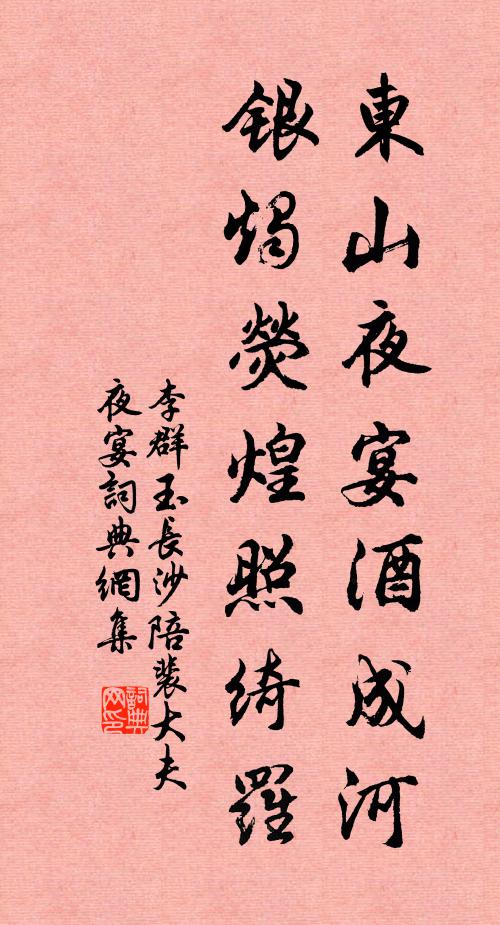 東山夜宴酒成河
銀燭熒煌照綺羅
李群玉長沙陪裴大夫
夜宴詞典網集
詞典
网印